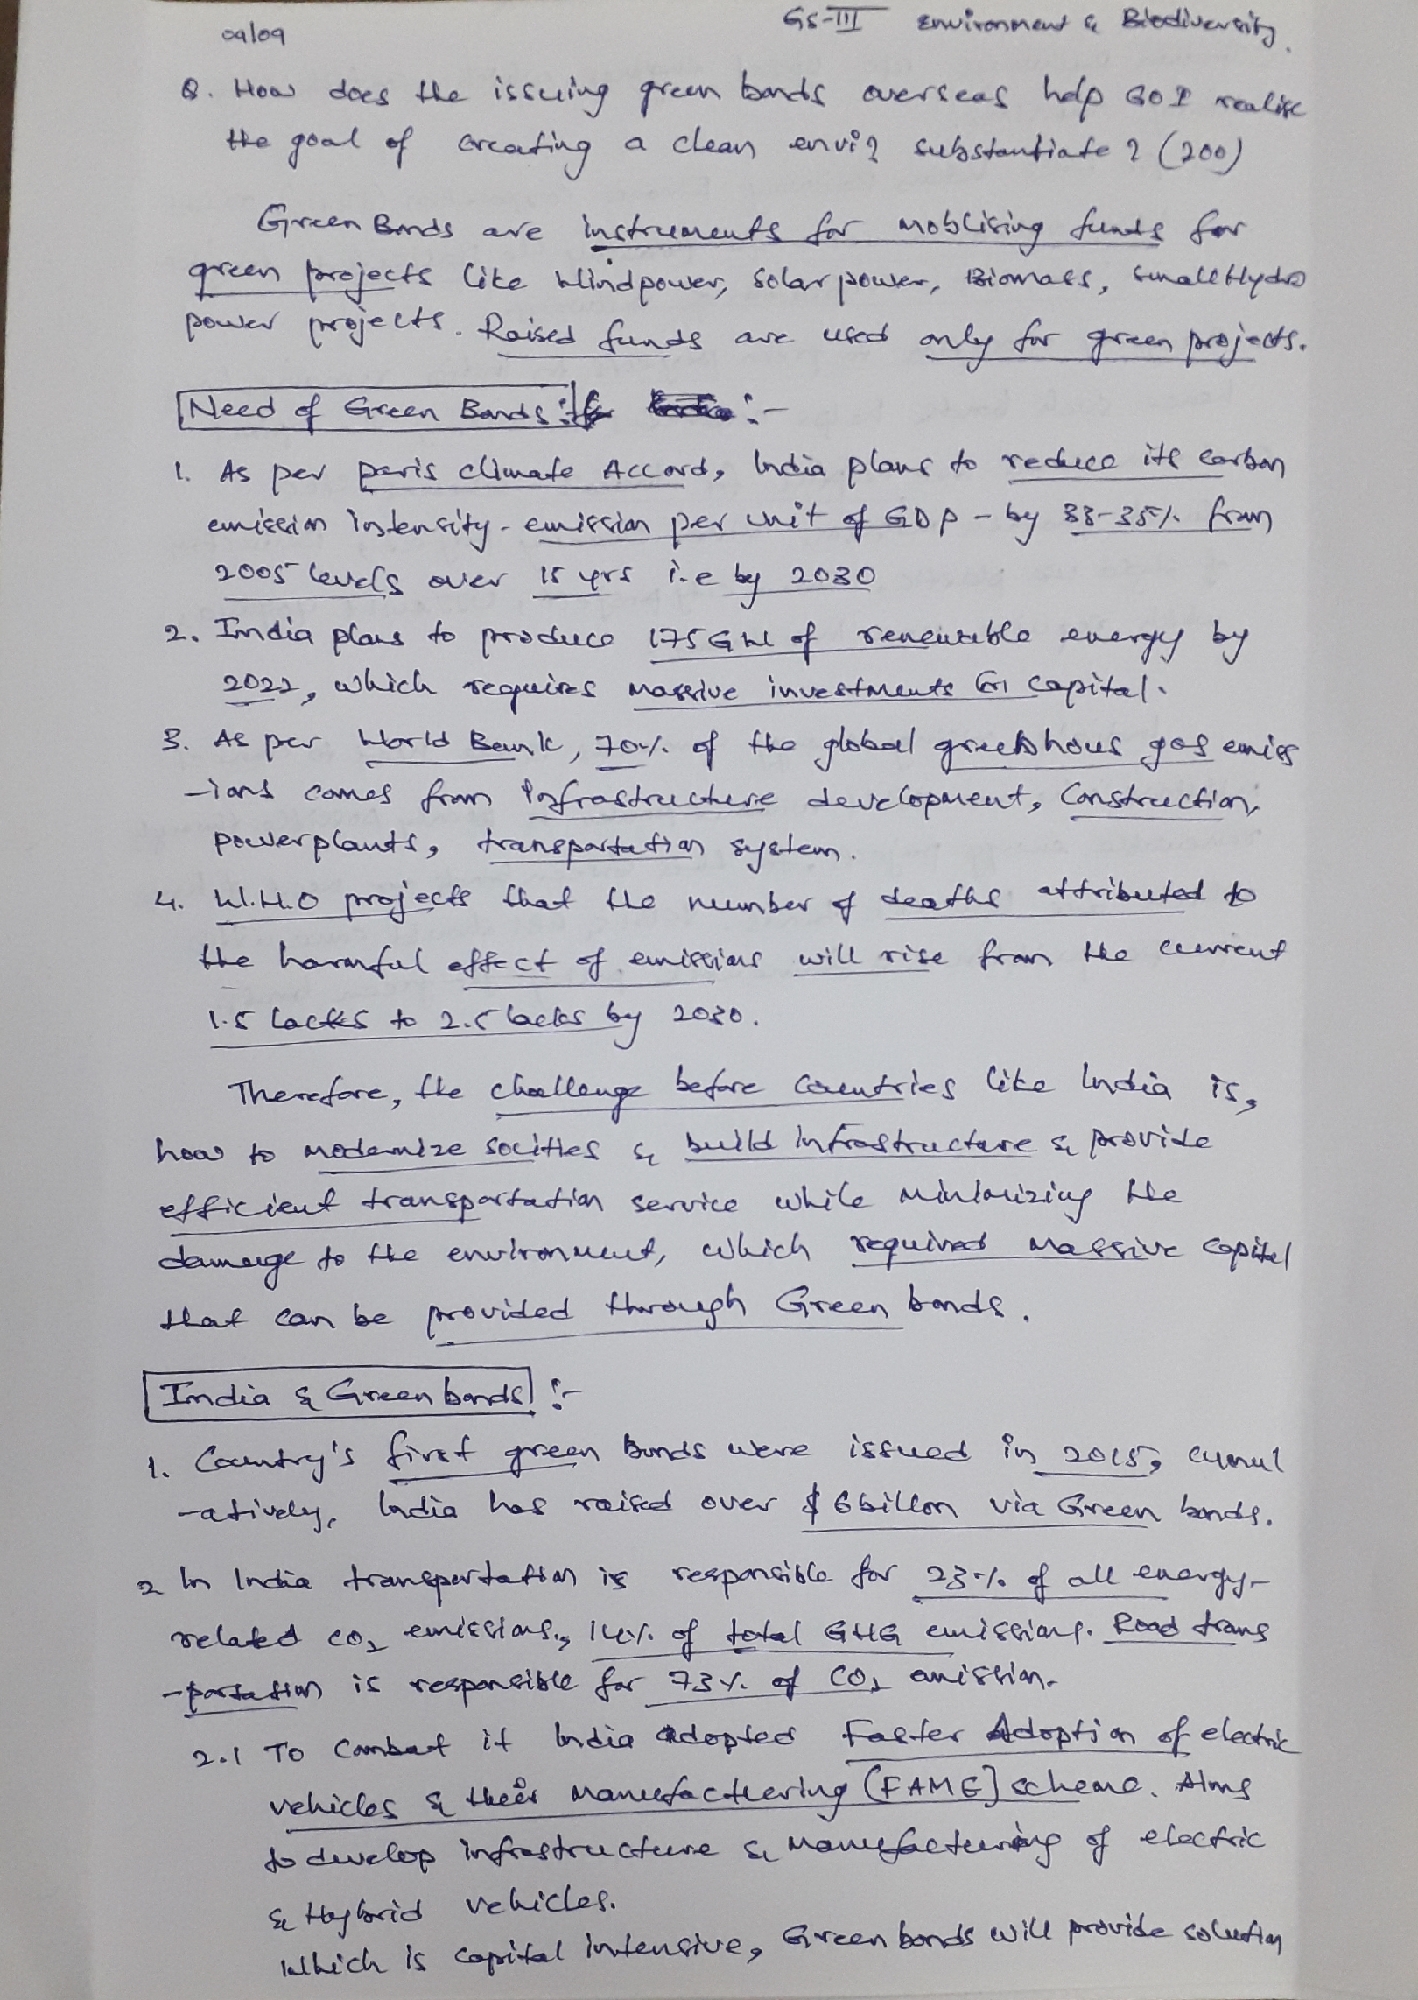 09/09
GS-III Environment & Biodiversity.
Q. How does the issuing green bonds overseas help GOI realise
the goal of creating a clean envi? substantiate? (200)
Green Bonds are instruments for moblising funds for
green projects like Windpower, Solar power, Biomass, small Hydro
power projects. Raised funds are used only for green projects.
Need of Green Bonds :-
1. As per paris climate Accord, India plans to reduce its carbon
emission intensity - emission per unit of GDP - by 33-35% from
2005 levels over 15 yrs i.e by 2030
2. India plans to produce 175 GW of renewable energy by
2022, which requires massive investments & capital.
3. As per World Bank, 70% of the global greenhous gas emiss
-ions comes from infrastructure development, Construction,
powerplants, transportation system.
4. W.H.O projects that the number of deaths attributed to
the harmful effect of emissions will rise from the current
1.5 lacks to 2.5 lacks by 2030.
Therefore, the challenge before Countries like India is,
how to modernize socities & build infrastructure & provide
efficient transportation service while minimizing the
damage to the environment, which required massive capital
that can be provided through Green bonds.
India & Green bonds :-
1. Country's first green Bonds were issued in 2015, cumul
-atively, India has raised over $ 6 billon via Green bonds.
2 In India transportation is responsible for 23% of all energy-
related CO2 emissions, 14% of total GHG emissions. Road trans
-portation is responsible for 73% of CO2 emission.
2.1 To Combat it India adopted Faster Adoption of electric
vehicles & their manufacturing (FAME] scheme. Aims
to develop infrastructure & manufacturing of electric
& Hybrid vehicles.
Which is capital intensive, Green bonds will provide solution